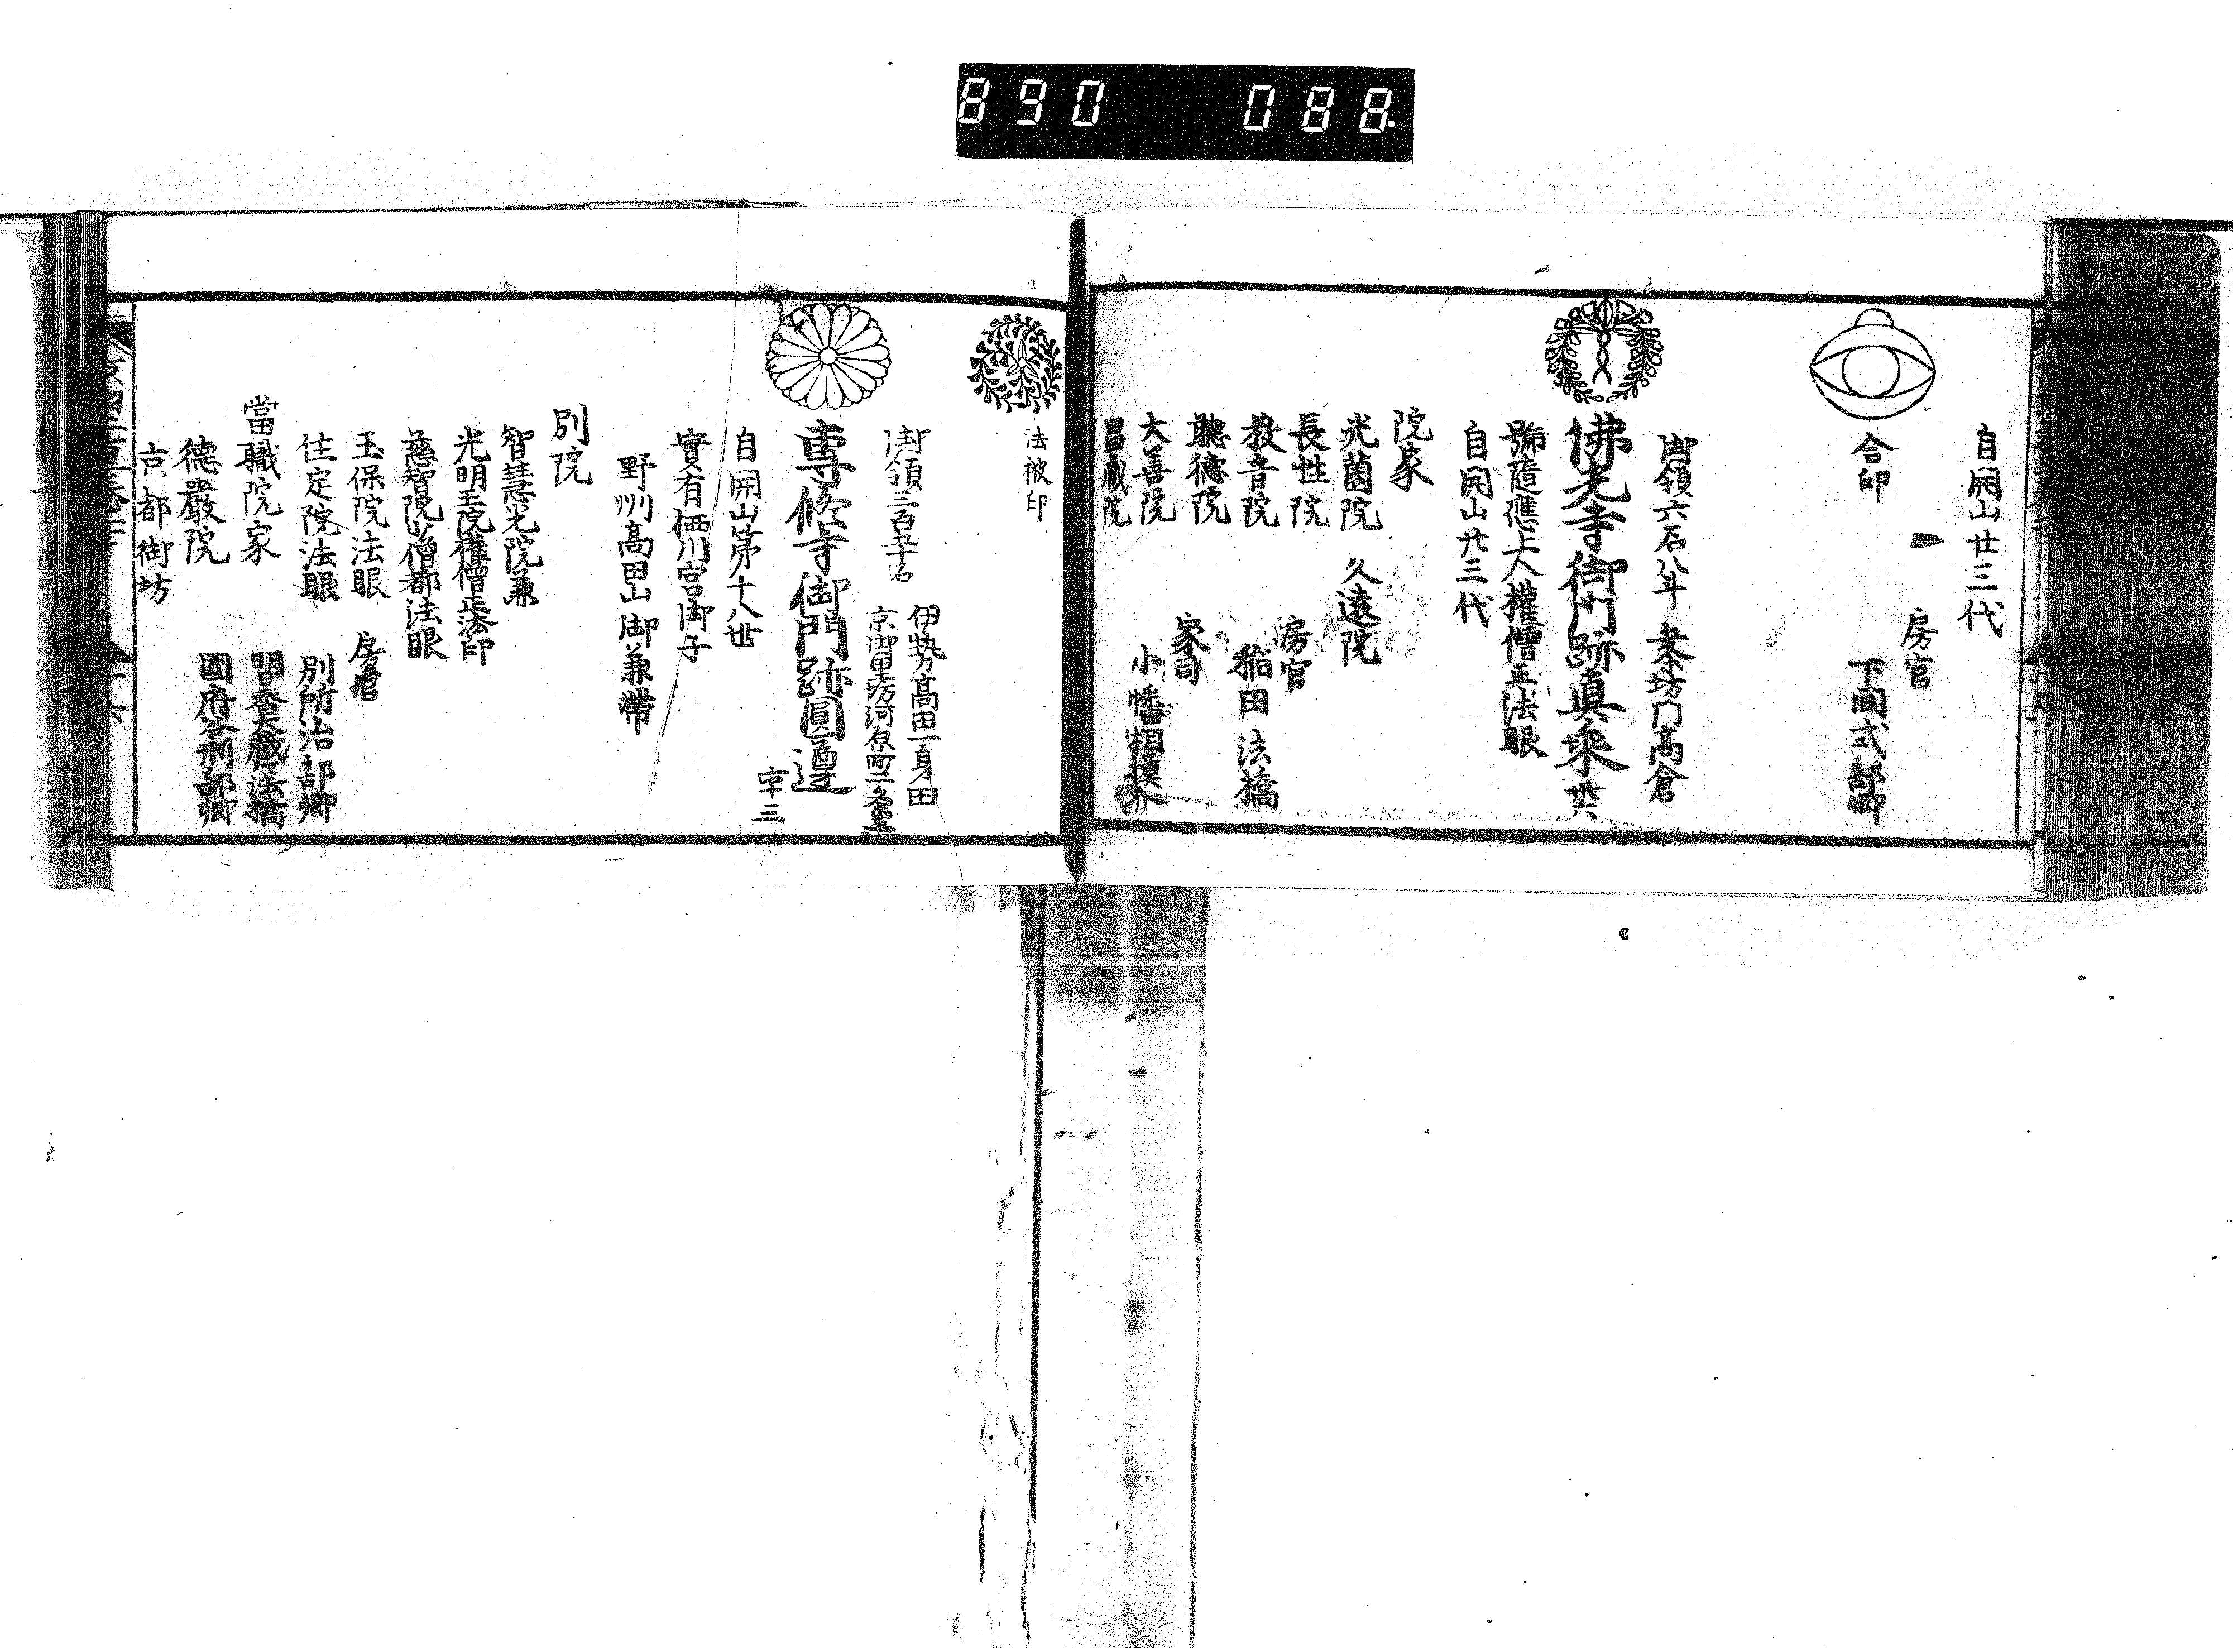 890 088
自開山廿三代
合印
房官
下間式部卿
御領六石八斗
坊門高倉
佛光寺御門跡眞乘
號隨應大權僧正法眼
自開山廿三代
院家
光薗院
久遠院
長性院
教音院
聽德院
大善院
昌藏院
房官
稲田法橋
家司
小幡相模介
法被印
御領三百五十石
伊勢高田一身田
京御里坊河原町二条上
専修寺御門跡圓遵
五十三
自開山第十八世
實有栖川宮御子
野州高田山御兼帶
別院
智慧光院兼
光明王院權僧正法印
慈智院少僧都法眼
玉保院法眼
住定院法眼
當職院家
德嚴院
京都御坊
房官
別所治部卿
國府谷刑部卿